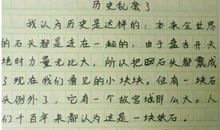 历史乱套了
我认为历史是这样的:本来全世界
的石头都是连在一起的,由于盘古开天
地时力量无比大,所以把石头都震成
了现在我们看见的小块块。但有一块石
头例外了,它有一个故宫城那么大。人
们千百年来都认为这是一块烂石。